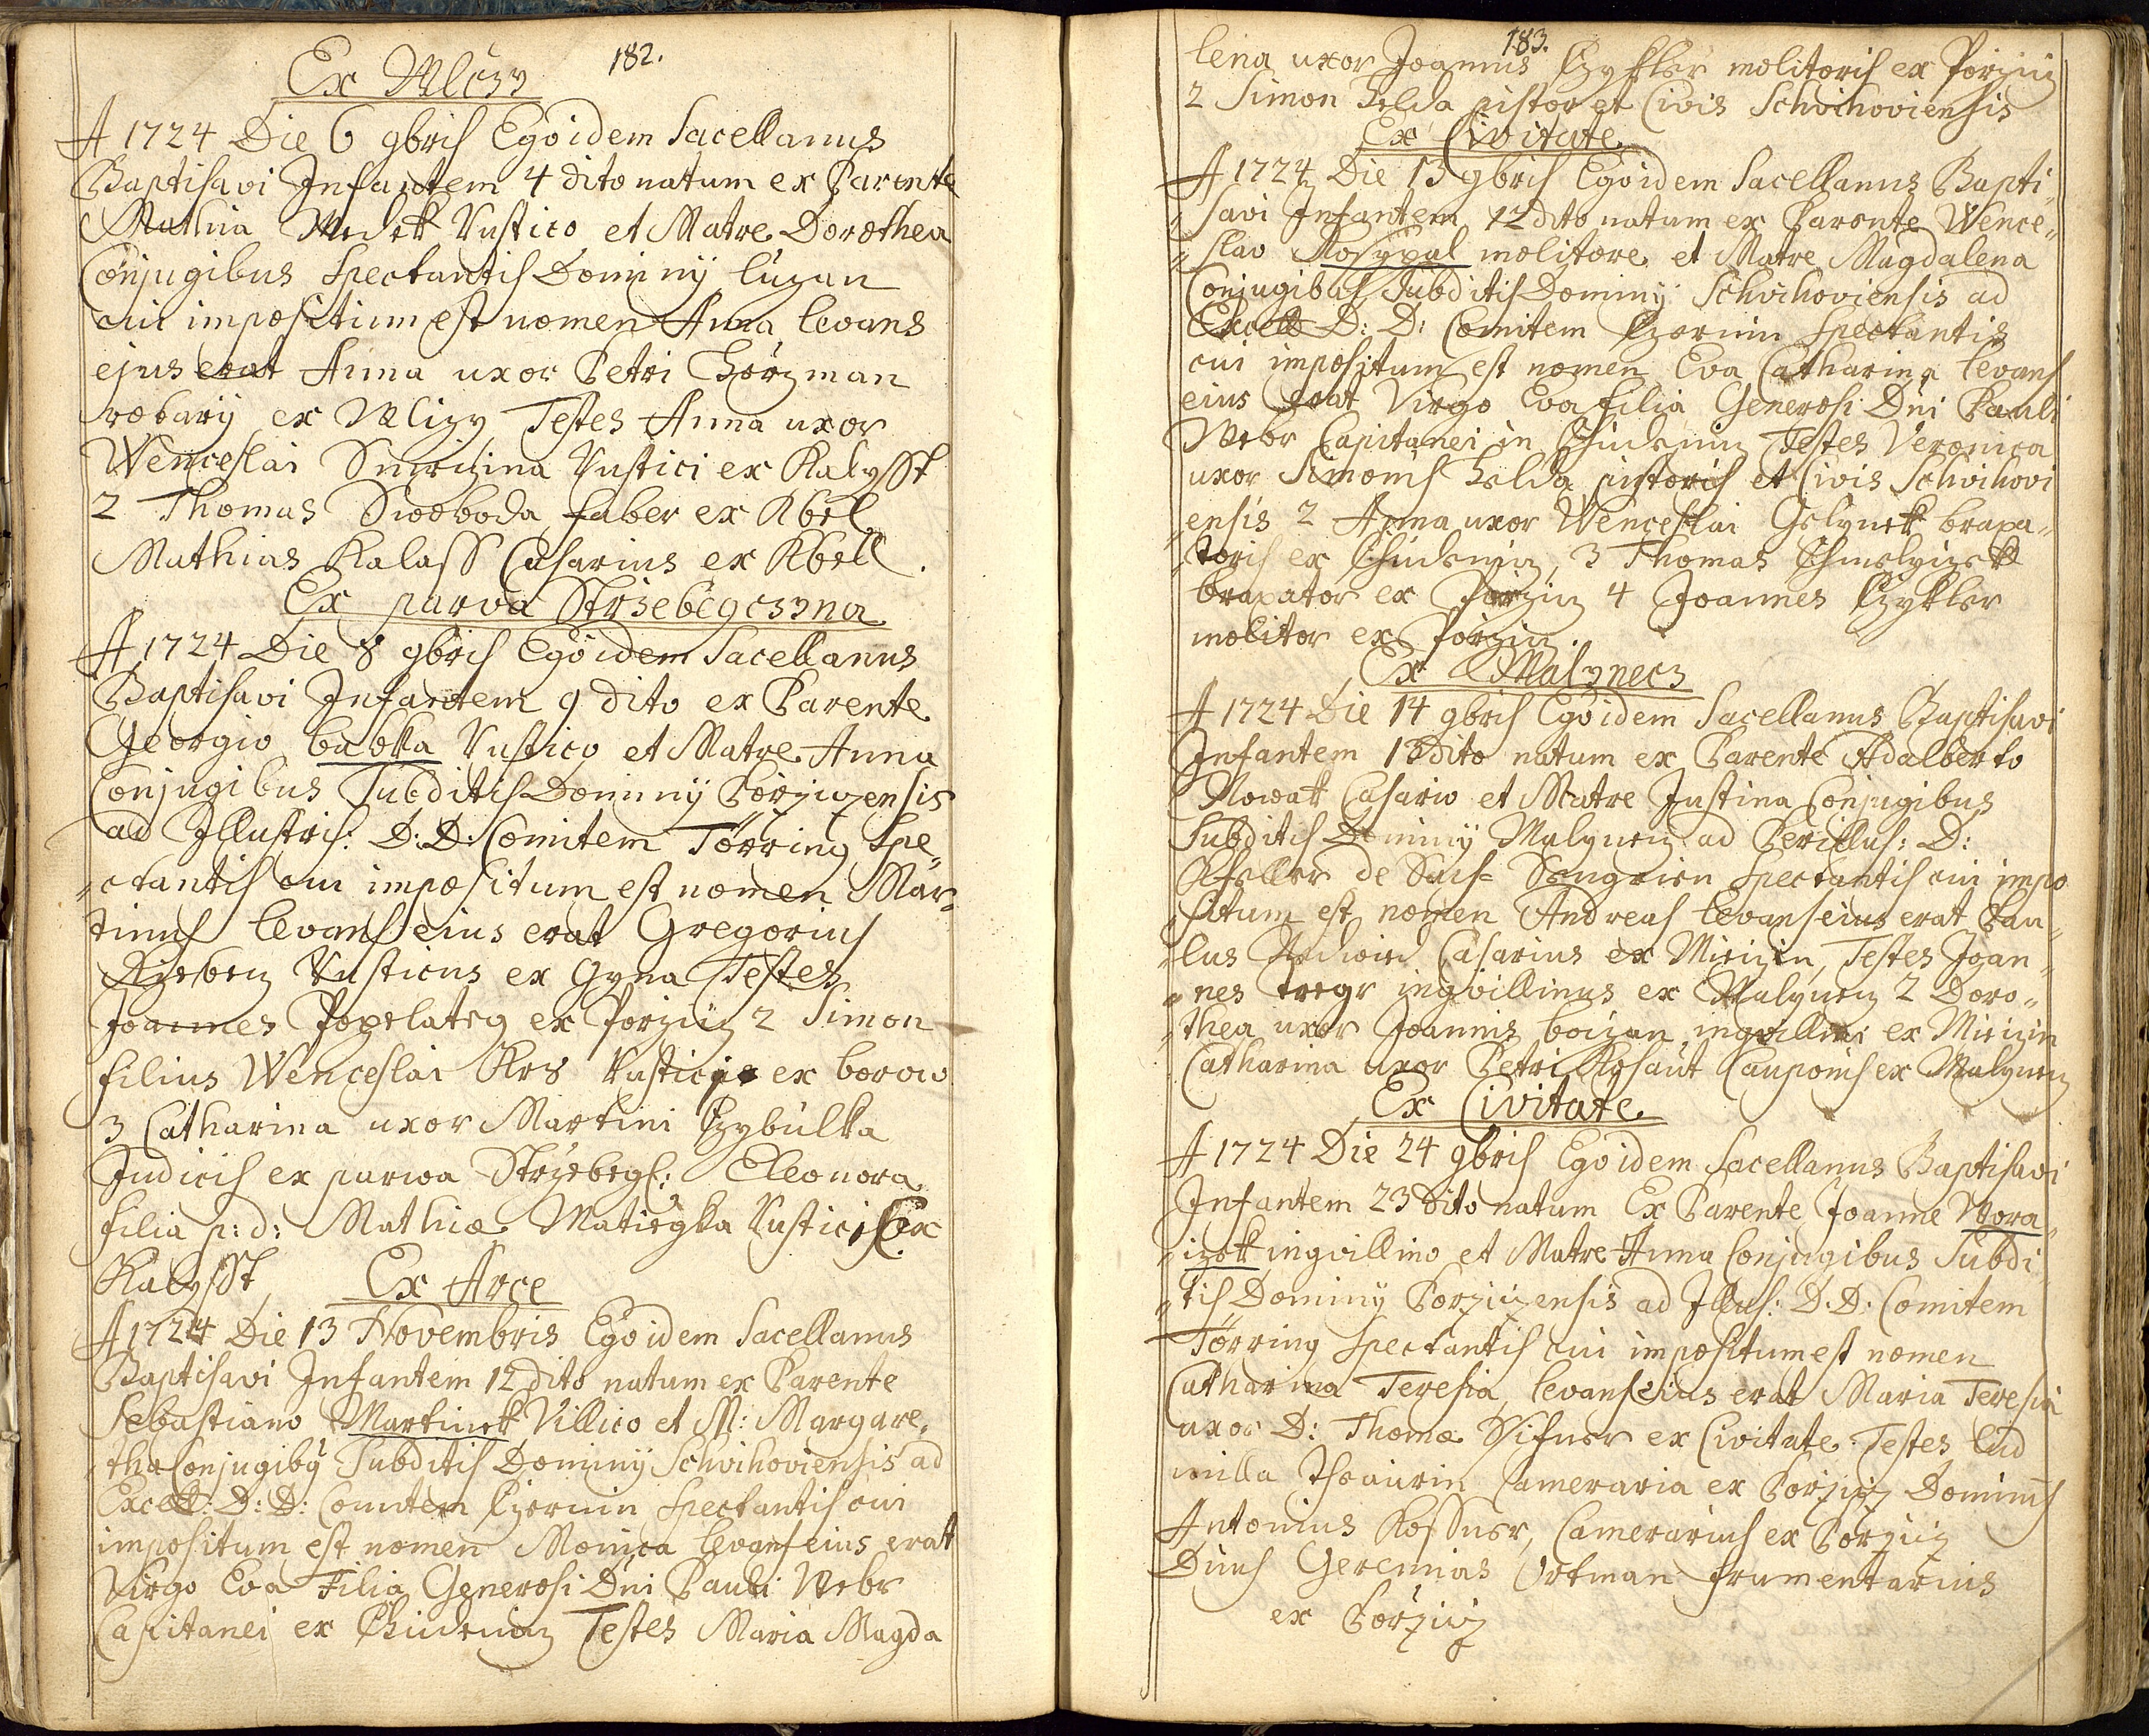 182.
Ex Wlczy
A 1724 Die 6 9bris Ego idem Sacellanus
Baptisavi Infantem 4 dito natum ex Parente
Mathia Rustico et Matre Dorothea
Conjugibus Spectantis Dominÿ luzan
cui impositium est nomen Anna levans
ejus erat Anna uxor Petri Herzman
robarÿ ex Wlczy Testes Anna uxor
Wenceslai Smrczina Rustici ex Kalysst
2 Thomas Swoboda faber ex Kbel
Mathias Kalass Casarius ex Kbell.
Ex parva Strzebegczna
A 1724 Die 8 9bris Ego idem Sacellanus
Baptisavi Infantem 9 dito ex Parente
Georgio babka Rustico et Matre Anna
Conjugibus Subditis Dominÿ Porziczensis
ad Illustris: D: D: Comitem Törring Spe„
„ctantis cui impositum est nomen Mar„
tinus levans eius erat Gregorius
Rusticus ex Gyna Testes
Joannes Popelateg ex Porzicz 2 Simon
filius Wenceslai Krs Rustici ex borow
3 Catharina uxor Martini Czybulka
Judicis ex parwa Strzebegs: Eleonora
filia p: d: Mathiæ Matiegka Rustici ex
Kalysst
Ex Arce
A 1724 Die 13 Novembris Ego idem Sacellanus
Baptisavi Infantem 12 dito natum ex Parente
Sebastiano Martinek Villico et M: Margare„
„tha Conjugibÿ Subditis Dominÿ Schvihoviensis ad
Excell: D: D: Comitem Czernin Spectantis cui
impositum est nomen Monica levans eius erat
Virgo Eva Filia Generosi Dni Pauli Webr
Capitanei ex Chudenicz Testes Maria Magda
183.
lena uxor Joannis Czykler molitoris ex Porzicz
2 Simon Helda pistor et Civis Schvihoviensis
Ex Civitate
A 1724 Die 13 9bris Ego idem Sacellanus Bapti„
„savi Infantem 12 dito natum ex Parente Wence„
„slao Rosypal molitore et Matre Magdalena
Conjugibus Subditis Dominÿ Schvihoviensis ad
Excell D: D: Comitem Czernin Spectantis
cui impositum est nomen Eva Catharina levans
eius erat Virgo Eva filia Generosi Dni Pauli
Webr Capitanei in Chudenicz Testes Veronica
uxor Simonis Helda pistoris et Civis Schvihovi
„ensis 2 Anna uxor Wenceslai Gelynek braxa„
„toris ex Chudenicz, 3 Thomas Chmelyczek
braxator ex Porzicz 4 Joannes Czykler
molitor ex Porzicz.
Ex Malynecz
A 1724 Die 14 9bris Ego idem Sacellanus Baptisavi
Infantem 13 dito natum ex Parente Adalberto
Nowak Casario et Matre Justina Conjugibus
Subditis Dominÿ Malynecz ad Perillus: D:
de Spectantis cui impo
„situm est nomen Andreas levans eius erat Pau„
„lus Casarius ex Miczin, Testes Joan„
„nes tregr inqvillinus ex Malynecz 2 Doro„
„thea uxor Joannis inqvillini ex Miczin
Catharina uxor Petri Kohaut Cauponis ex Malynecz
Ex Civitate
A 1724 Die 24 9bris Ego idem Sacellanus Baptisavi
Infantem 23 dito natum Ex Parente Joanne Wora„
„czek inqvillino et Matre Anna Conjugibus Subdi„
„tis Dominÿ Porziczensis ad Illus: D: D: Comitem
Törring Spectantis cui impositum est nomen
Catharina Teresia, levans eius erat Maria Teresia
uxor D: Thomæ ex Civitate Testes lud
milla Cameraria ex Porzicz Dominus
Antonius Camerarius ex Porzicz
Dnus Geremias Ortman frumentarius
ex Porzicz